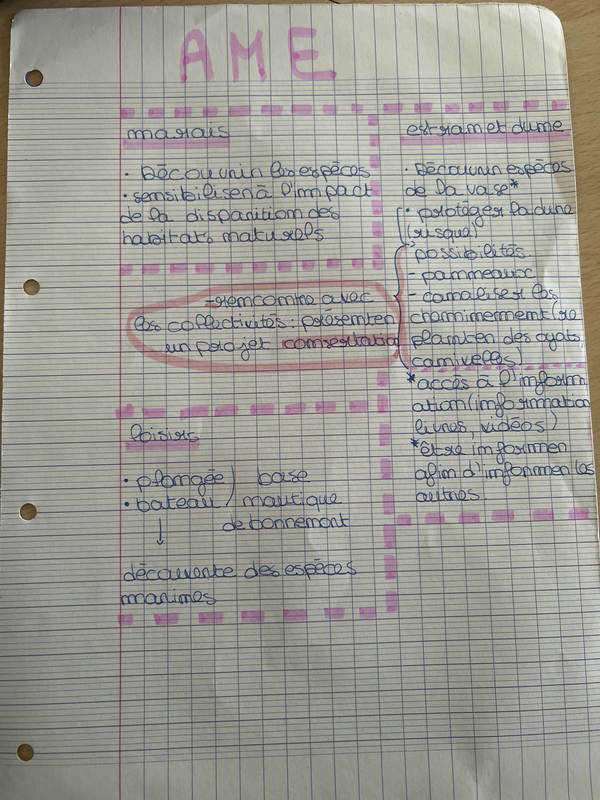 AME
marais
• Découvrir les espèces
• sensibiliser à l'impact
de la disparition des
habitats naturels
- rencontre avec
les collectivités : présenter
un projet consertation
loisirs
• plongée ) base
• bateau ) nautique
de tonnement
↓
découverte des espèces
marines
estran et dune
• Découvrir espèces
de la vase*
• protéger la dune
(risque)
possibilités
- panneaux
- canaliser les
cheminement (re
planter des oyats,
canivelles)
*accès à l'inform
ation (information
livres, vidéos)
*être informer
afin d'informer les
autres